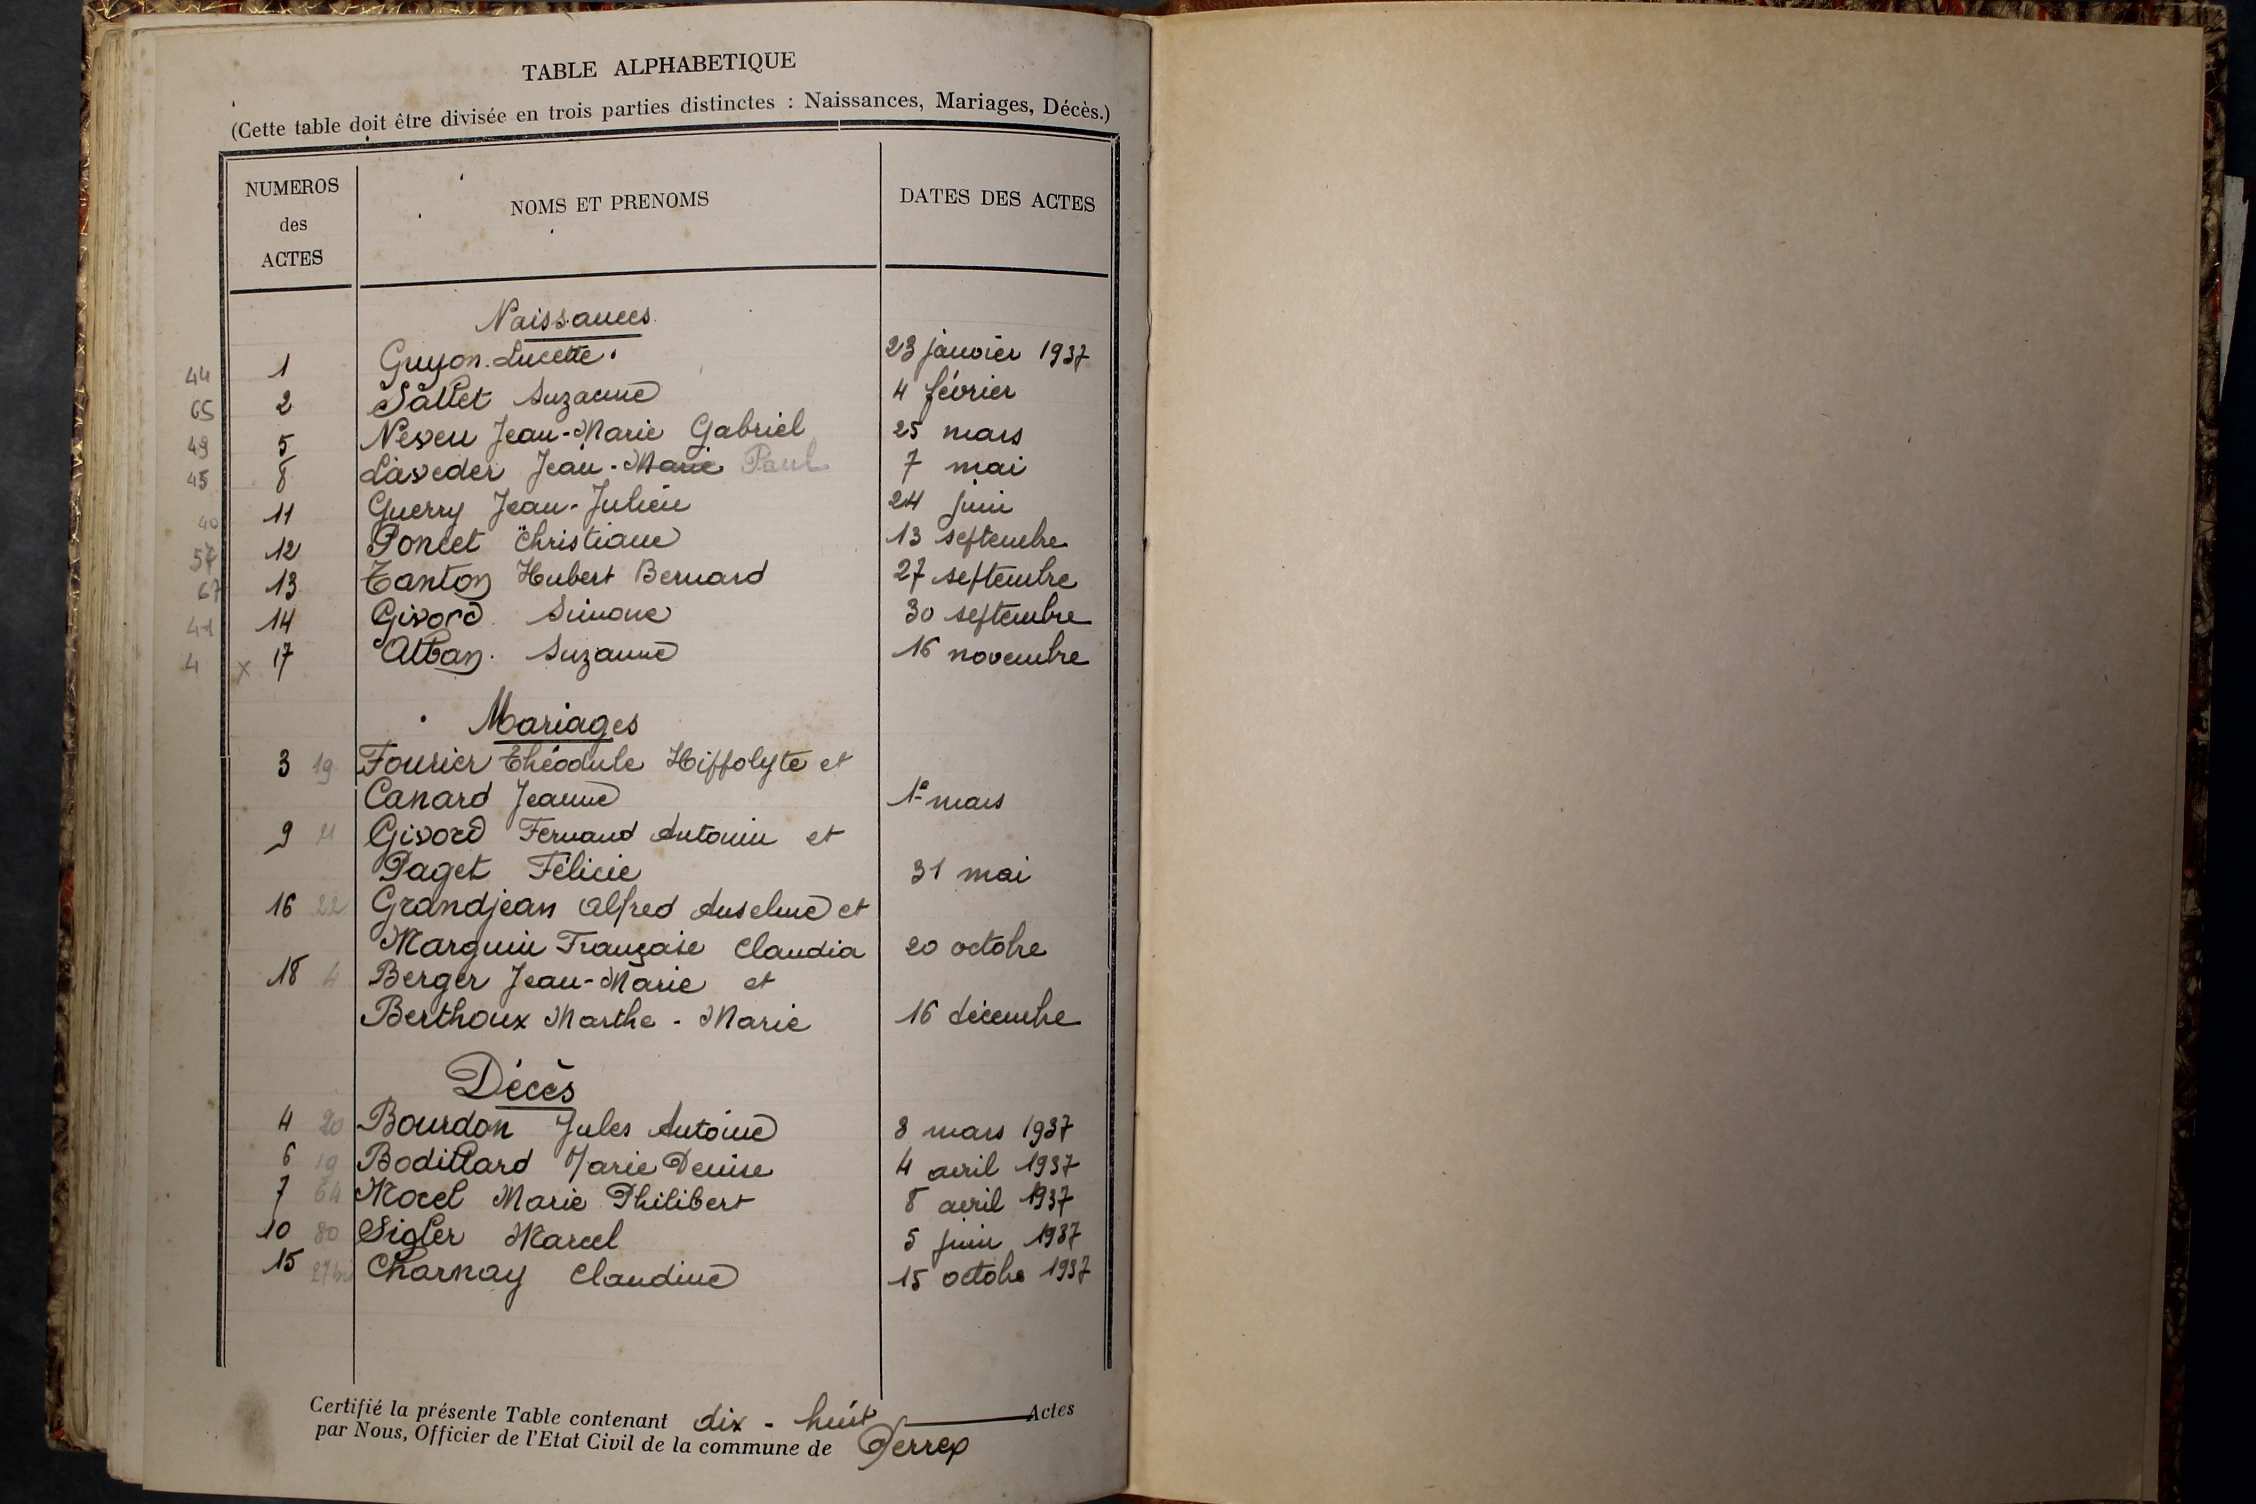 TABLE ALPHABETIQUE
(Cette table doit être divisée en trois parties distinctes : Naissances, Mariages, Décès.)
NUMEROS des ACTES NOMS ET PRENOMS DATES DES ACTES
Naissances
44 1 Guyon Lucette 23 janvier 1937
65 2 Sallet Suzanne 4 février
49 5 Neveu Jean-Marie Gabriel 25 mars
45 8 Laveder Jean-Marie Paul 7 mai
40 11 Guerry Jean-Julien 24 juin
57 12 Poncet Christiane 13 septembre
67 13 Tanton Hubert Bernard 27 septembre
41 14 Givord Simone 30 septembre
4 x 17 Alban Suzanne 16 novembre
Mariages
3 19 Fourier Théodule Hippolyte et
Canard Jeanne 1e mars
9 Givord Fernand Antonin et
Paget Félicie 31 mai
16 22 Grandjean Alfred Anselme et
Marguin Françoise Claudia 20 octobre
18 4 Berger Jean-Marie et
Berthoux Marthe-Marie 16 décembre
Décès
4 20 Bourdon Jules Antoine 8 mars 1937
6 19 Bodillard Marie Denise 4 avril 1937
7 64 Morel Marie Philibert 8 avril 1937
10 80 Sigler Marcel 5 juin 1937
15 Charnay Claudine 15 octobre 1937
Certifié la présente Table contenant dix-huit Actes
par Nous, Officier de l'Etat Civil de la commune de Perrex